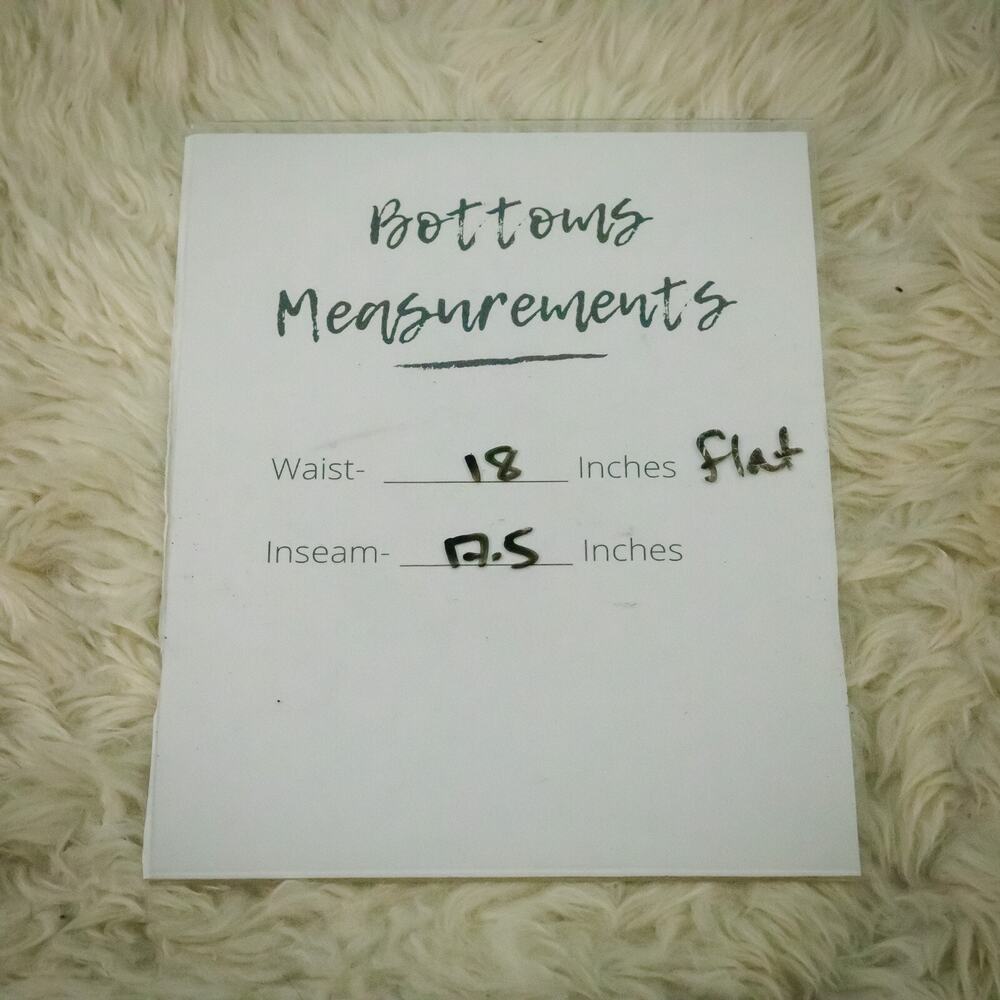 Bottoms
Measurements
Waist- 18 Inches Flat
Inseam- 17.5 Inches